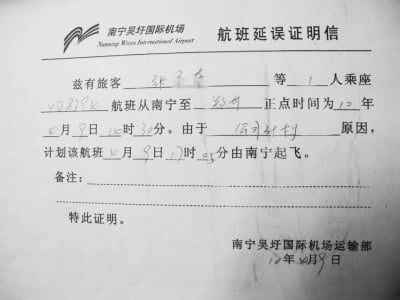 南宁吴圩国际机场
Nanning Wuxu International Airport
航班延误证明信
兹有旅客 张 等 1 人乘座
航班从南宁至 郑州 正点时间为10年
4月9日 时30分。由于 公司计划 原因，
计划该航班4月9日17时05分由南宁起飞。
备注：
特此证明。
南宁吴圩国际机场运输部
10年4月9日